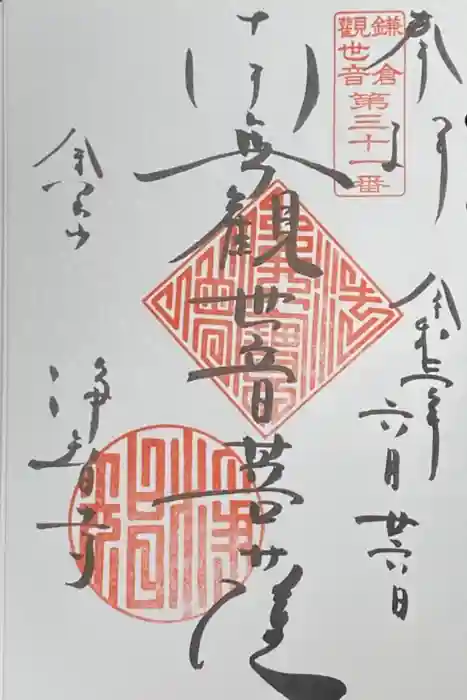 奉拝
令和三年六月廿六日
鎌倉
觀世音
第三十一番
南無観世音菩薩
金宝山
浄智寺